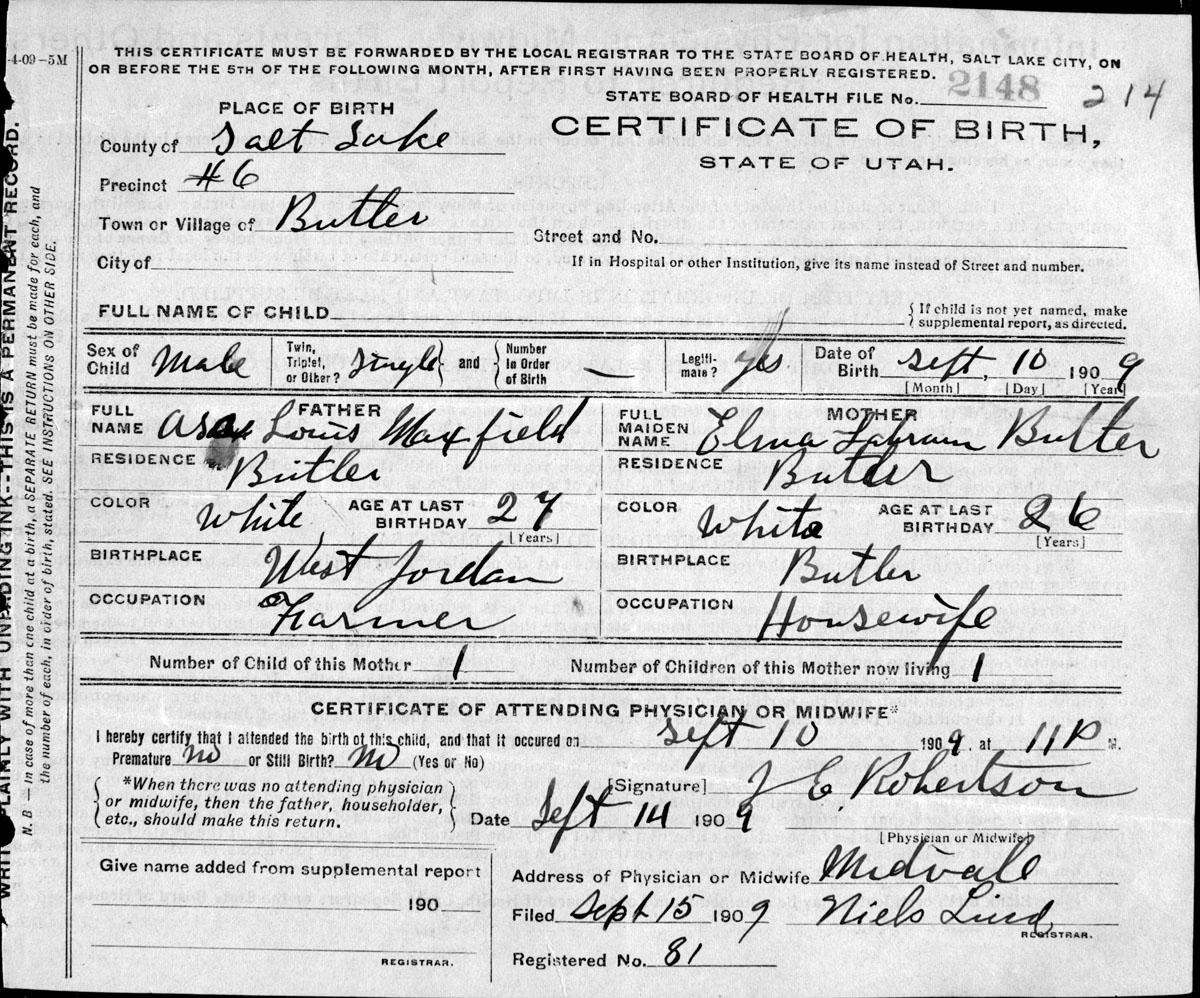 4-09-5M
THIS CERTIFICATE MUST BE FORWARDED BY THE LOCAL REGISTRAR TO THE STATE BOARD OF HEALTH, SALT LAKE CITY, ON
OR BEFORE THE 5TH OF THE FOLLOWING MONTH, AFTER FIRST HAVING BEEN PROPERLY REGISTERED.
STATE BOARD OF HEALTH FILE No. 2148 214
PLACE OF BIRTH
CERTIFICATE OF BIRTH,
STATE OF UTAH.
County of Salt Lake
Precinct #6
Town or Village of Butler
Street and No.
City of
If in Hospital or other Institution, give its name instead of Street and number.
FULL NAME OF CHILD
{ If child is not yet named, make
supplemental report, as directed.
Sex of Child Male
Twin, Triplet, or Other? Single } and { Number In Order of Birth —
Legitimate? Yes
Date of Birth Sept. 10 1909
[Month] [Day] [Year]
FATHER
FULL NAME Asa Louis Maxfield
RESIDENCE Butler
COLOR White AGE AT LAST BIRTHDAY 27
[Years]
BIRTHPLACE West Jordan
OCCUPATION Farmer
MOTHER
FULL MAIDEN NAME Elma Butler
RESIDENCE Butler
COLOR White AGE AT LAST BIRTHDAY 26
[Years]
BIRTHPLACE Butler
OCCUPATION Housewife
Number of Child of this Mother 1 Number of Children of this Mother now living 1
CERTIFICATE OF ATTENDING PHYSICIAN OR MIDWIFE*
I hereby certify that I attended the birth of this child, and that it occured on Sept 10 1909, at 11 P M.
Premature no or Still Birth? No (Yes or No)
*When there was no attending physician
or midwife, then the father, householder,
etc., should make this return.
[Signature] J E Robertson
Date Sept 14 1909
[Physician or Midwife]
Give name added from supplemental report
190
REGISTRAR.
Address of Physician or Midwife Midvale
Filed Sept 15 1909 Niels Lind
REGISTRAR.
Registered No. 81
WRITE PLAINLY WITH UNFADING INK--THIS IS A PERMANENT RECORD.
N. B.—In case of more than one child at a birth, a SEPARATE RETURN must be made for each, and
the number of each, in order of birth, stated. SEE INSTRUCTIONS ON OTHER SIDE.